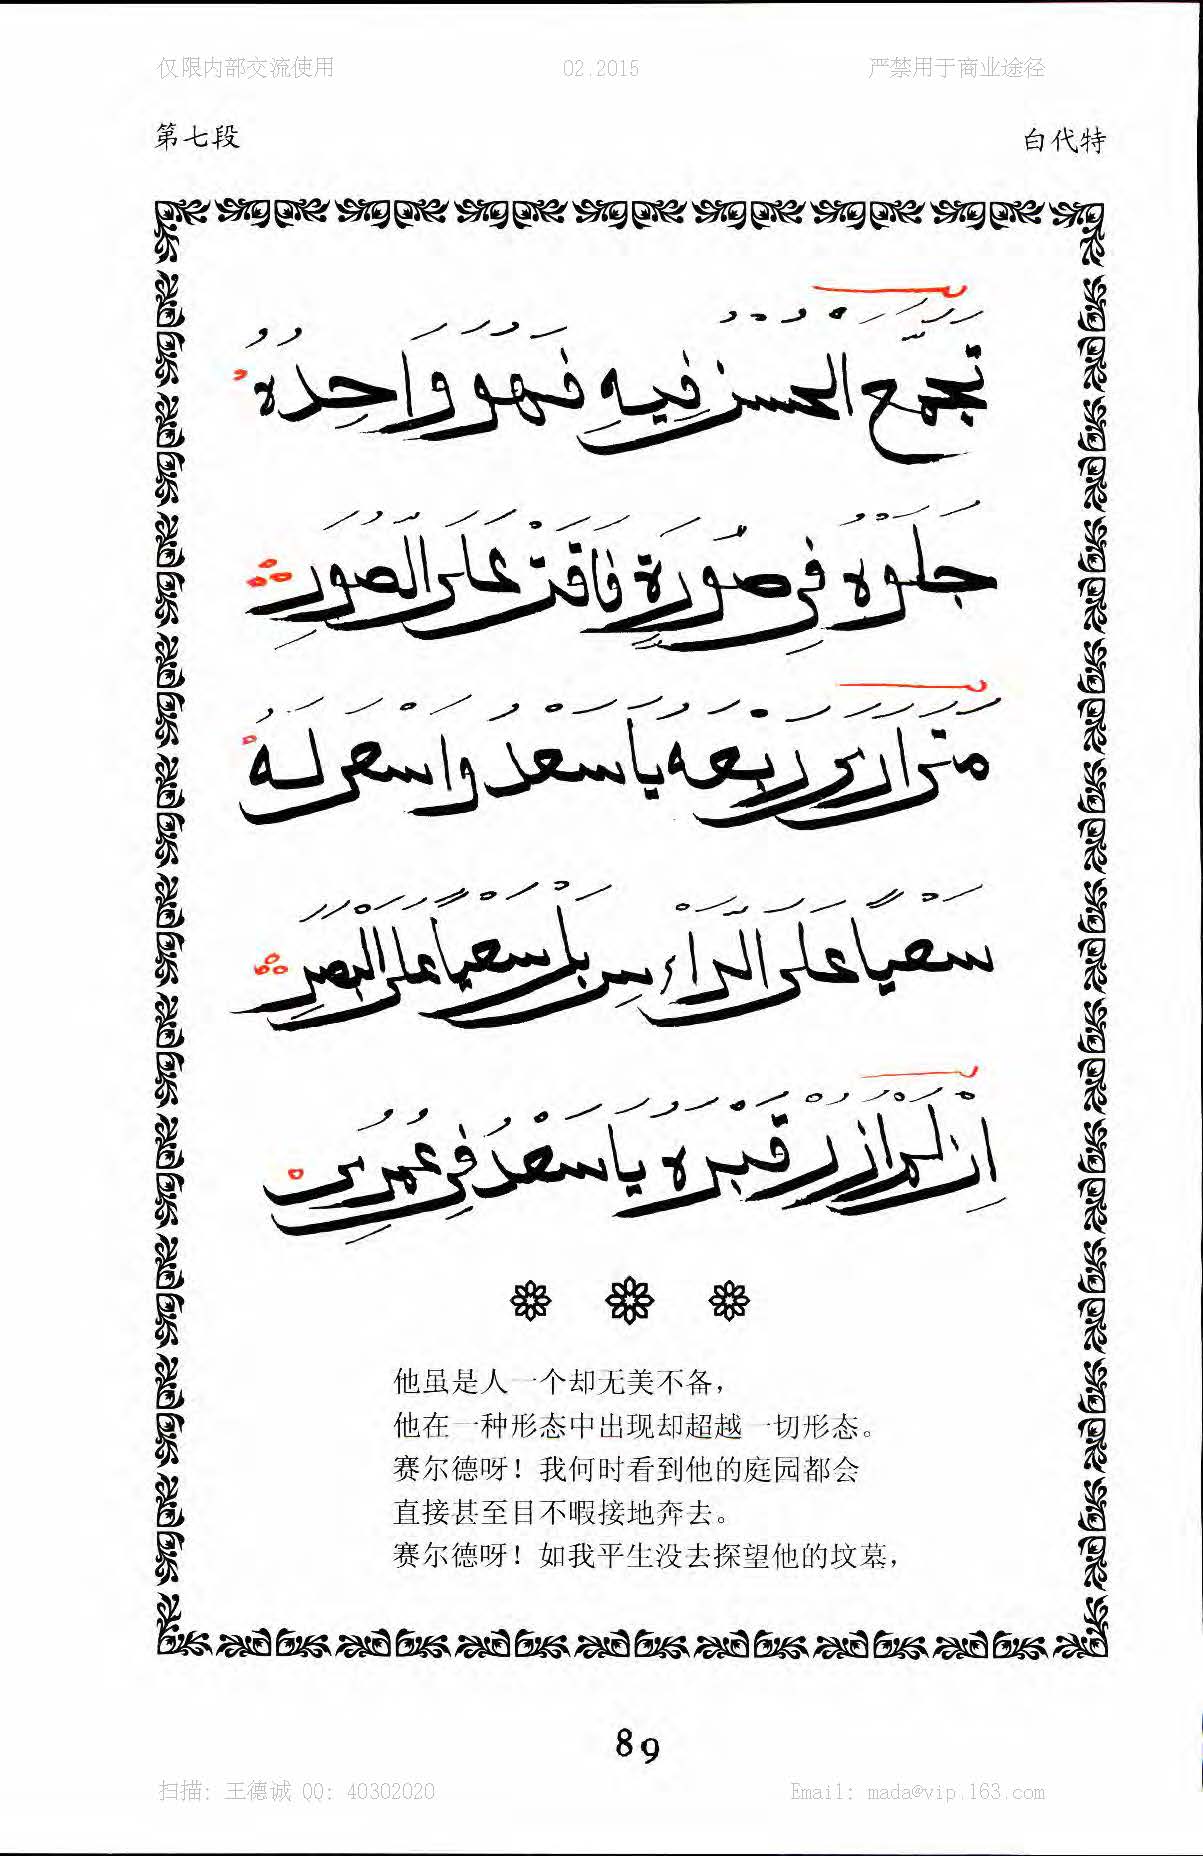 仅限内部交流使用 02.2015 严禁用于商业途径
第七段 白代特
تَجَمَّعَ الْحُسْنُ فِيهِ فَهُوَ وَاحِدُهُ
جَلَوْهُ فِي صُورَةٍ فَاقَتْ عَلَى الصُّوَرِ
مَتَى أَرَى رَبْعَهُ يَا سَعْدُ وَاَسْعَى لَهُ
سَعْيًا عَلَى الرَّاءْسِ بَلْ سَعْيًا عَلَى الْبَصَرِ
اِنْ لَمْ اَزُرْ قَبْرَهُ يَا سَعْدُ فِي عُمُرِي
他虽是人一个却无美不备，
他在一种形态中出现却超越一切形态。
赛尔德呀！我何时看到他的庭园都会
直接甚至目不暇接地奔去。
赛尔德呀！如我平生没去探望他的坟墓，
89
扫描：王德诚 QQ：40302020 Email：mada@vip.163.com